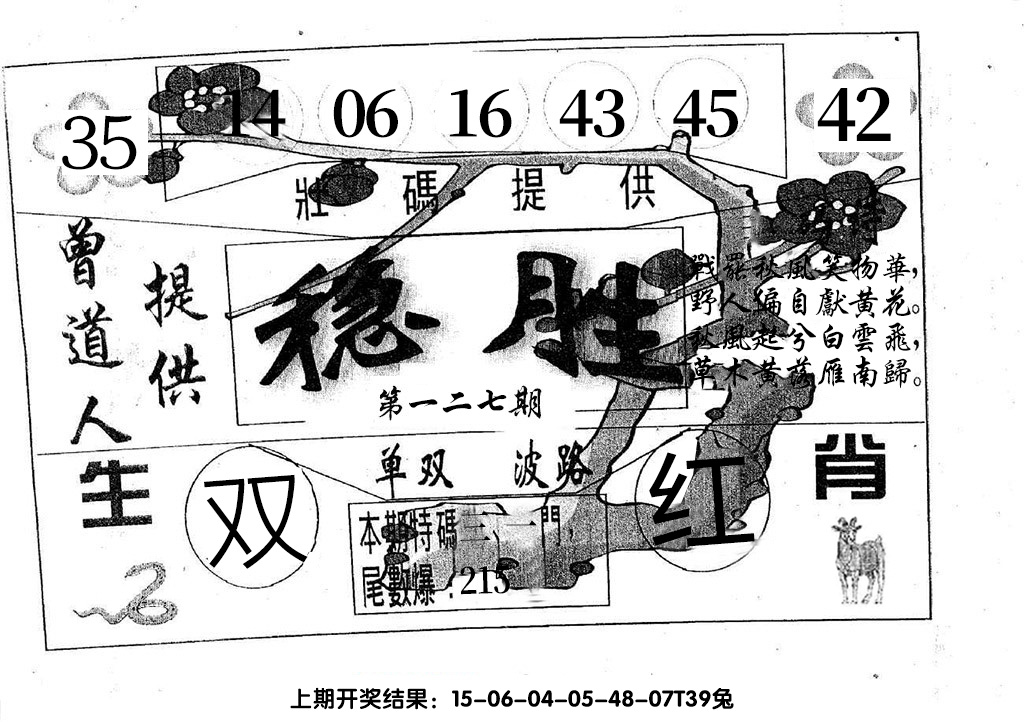 35 14 06 16 43 45 42
壯碼提供
曾道人
提供
稳胜
第一二七期
戰罷秋風笑物華，
野人偏自獻黃花。
秋風起兮白雲飛，
草木黃落雁南歸。
单双 波路
生肖
双 红
本期特碼三、一門，
尾數爆：215
上期开奖结果：15-06-04-05-48-07T39兔